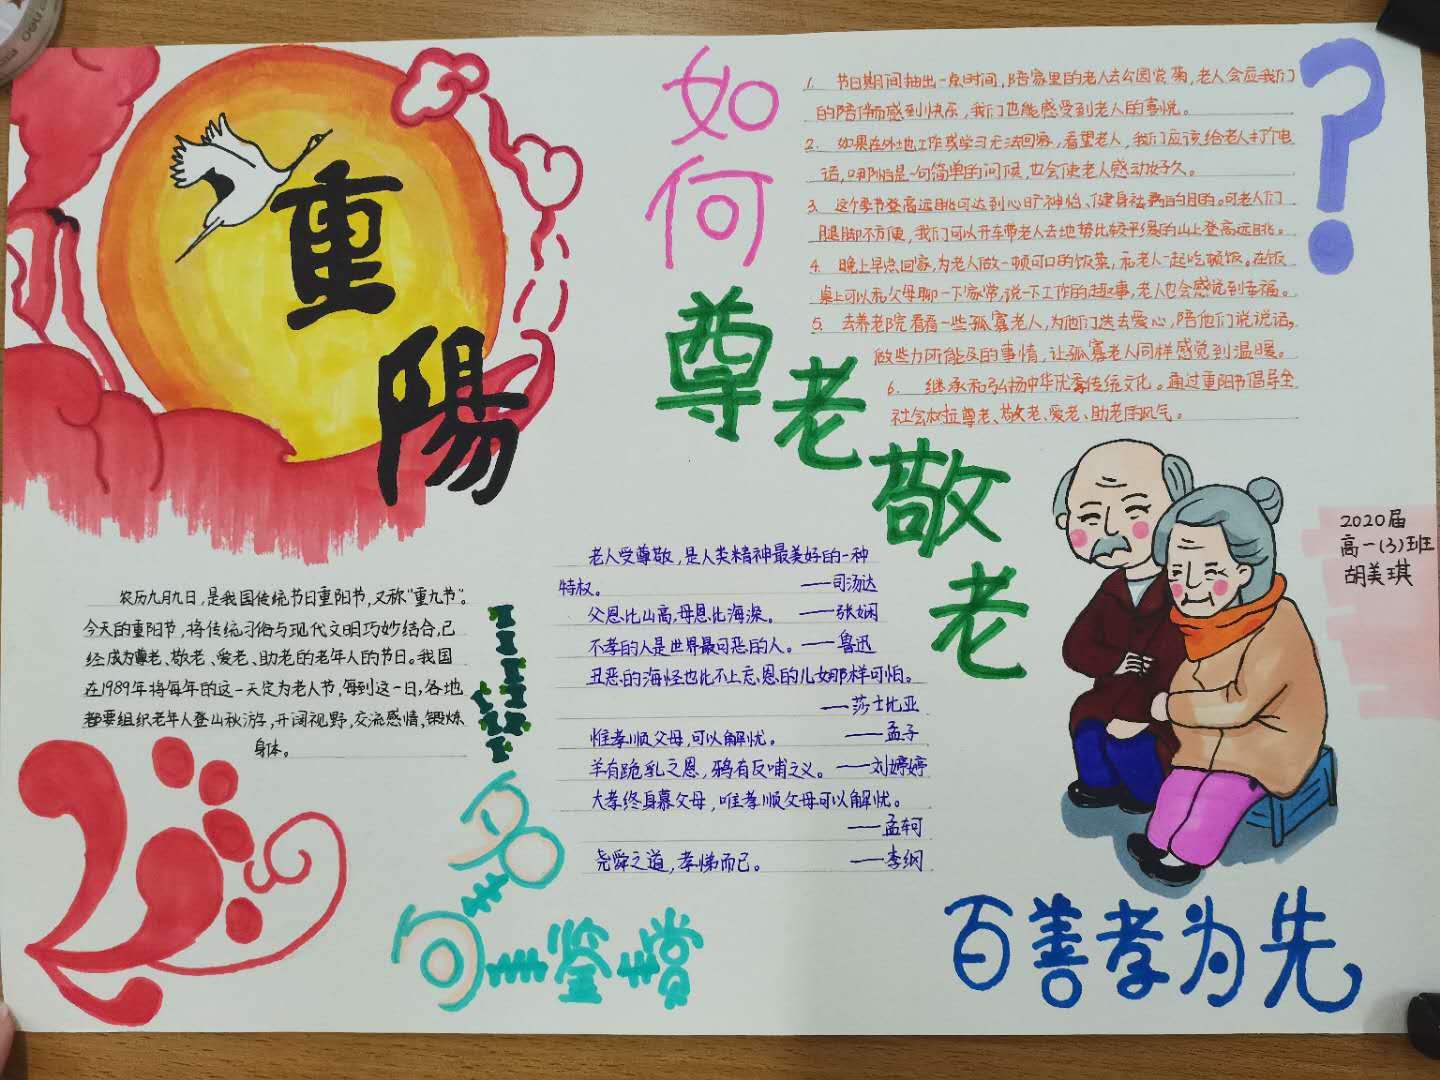 重
陽
如
何
尊
老
敬
老
？
1. 节日期间抽出一点时间,陪家里的老人去公园赏菊,老人会应我们
的陪伴而感到快乐,我们也能感受到老人的喜悦。
2. 如果在外地工作或学习无法回家,看望老人,我们应该给老人打个电
话,哪怕是一句简单的问候,也会使老人感动好久。
3. 这个季节登高远眺可达到心旷神怡、健身祛病的目的。可老人们
腿脚不方便,我们可以开车带老人去地势比较平缓的山上登高远眺。
4. 晚上早点回家,为老人做一顿可口的饭菜,和老人一起吃顿饭。在饭
桌上可以和父母聊一下家常,说一下工作的趣事,老人也会感觉到幸福。
5. 去养老院看看一些孤寡老人,为他们送去爱心,陪他们说说话,
做些力所能及的事情,让孤寡老人同样感觉到温暖。
6. 继承和弘扬中华优秀传统文化。通过重阳节倡导全
社会树立尊老、敬老、爱老、助老的风气。
2020届
高一(3)班
胡美琪
农历九月九日,是我国传统节日重阳节,又称"重九节"。
今天的重阳节,将传统习俗与现代文明巧妙结合,已
经成为尊老、敬老、爱老、助老的老年人的节日。我国
在1989年将每年的这一天定为老人节,每到这一日,各地
都要组织老年人登山秋游,开阔视野,交流感情,锻炼
身体。
老人受尊敬,是人类精神最美好的一种
特权。 ——司汤达
父恩比山高,母恩比海深。 ——张娴
不孝的人是世界最可恶的人。——鲁迅
丑恶的海怪也比不上忘恩的儿女那样可怕。
——莎士比亚
惟孝顺父母,可以解忧。 ——孟子
羊有跪乳之恩,鸦有反哺之义。——刘婷婷
大孝终身慕父母,唯孝顺父母可以解忧。
——孟轲
尧舜之道,孝悌而已。 ——李纲
名
句鉴赏
百善孝为先